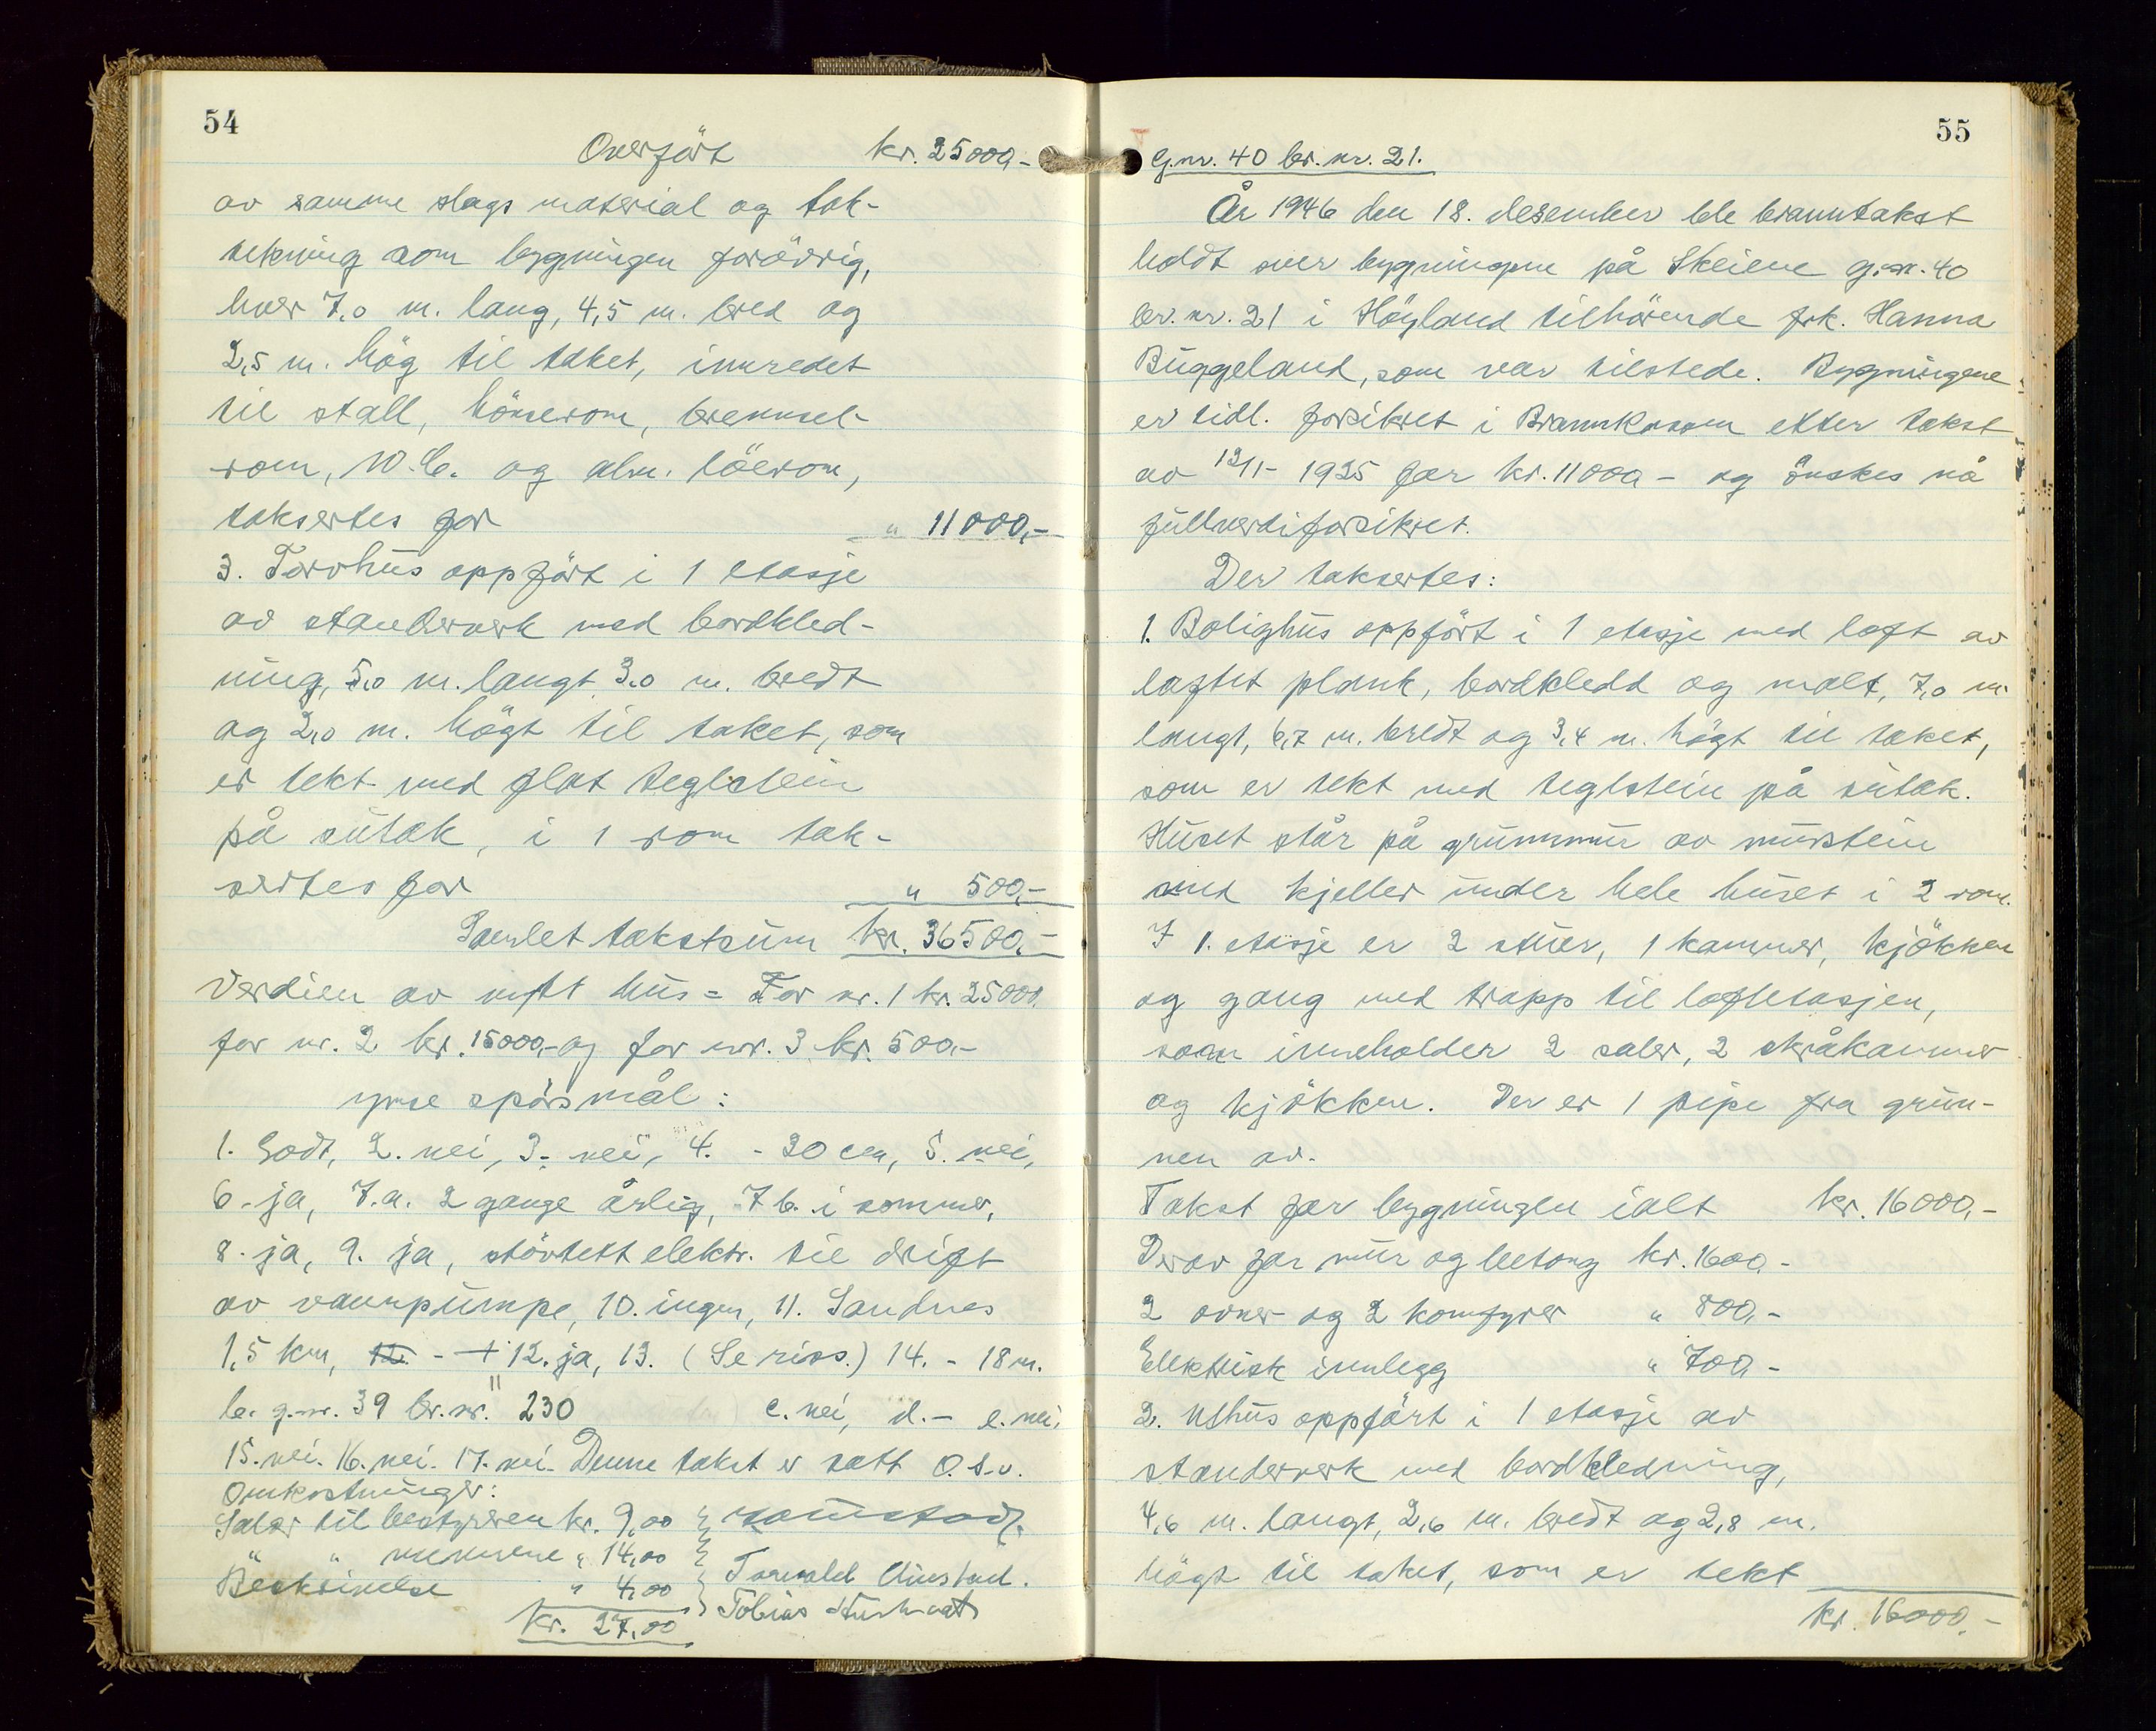 54
Overført kr. 25000,-
av samme slags material og tak-
tekning som bygningen forøvrig,
hver 7,0 m. lang, 4,5 m. bred og
2,5 m. høg til taket, innredet
til stall, hönserom, brennsel-
rom, W.C. og alm. löerom,
taksertes for " 11000,-
3. Torvhus oppfört i 1 etasje
av standerverk med bordkled-
ning, 5,0 m. langt 3,0 m. bredt
og 2,0 m. högt til taket, som
er tekt med flat teglstein
på sutak, i 1 rom tak-
sertes for " 500,-
Samlet takstsum kr. 36500,-
Verdien av nytt hus = For nr. 1 kr. 25000,
for nr. 2 kr. 15000,- og for nr. 3 kr. 500,-
ymse spörsmål:
1. Godt, 2. nei, 3. nei, 4. - 30 cm, 5. nei,
6. ja, 7.a. 2 gange årlig, 7 b. i sommer,
8. ja, 9. ja, stövtett elektr. til drift
av vannpumpe, 10. ingen, 11. Sandnes
1,5 km, 12. - + 12. ja, 13. (Se riss.) 14. - 18 m.
b. g.nr. 39 br.nr. 230 c. nei, d. - e. nei,
15. nei. 16. nei. 17. nei. Denne takst er satt o.s.v.
Omkostninger:
Salær til bestyreren kr. 9,00
" " mennene " 14,00
Beskrivelse " 4,00 Torvald
kr. 27,00 Tobias
55
G.nr. 40 br. nr. 21.
År 1946 den 18. desember ble branntakst
holdt over bygningene på Skeiene g.nr. 40
br. nr. 21 i Höyland tilhörende frk. Hanna
Buggeland, som var tilstede. Bygningene
er tidl. forsikret i Brannkassen etter takst
av 12/11- 1925 for kr. 11000,- og önskes nå
fullverdiforsikret.
Der taksertes:
1. Bolighus oppfört i 1 etasje med loft av
laftet plank, bordkledd og malt, 7,0 m
langt, 6,7 m. bredt og 3,4 m. högt til taket,
som er tekt med teglstein på sutak.
Huset står på grunnmur av murstein
med kjeller under hele huset i 2 rom.
I 1. etasje er 2 stuer, 1 kammer, kjökken
og gang med trapp til loftetasjen,
som inneholder 2 saler, 2 skråkammer
og kjökken. Der er 1 pipe fra grun-
nen av.
Takst for bygningen ialt kr. 16000,-
Derav for mur og betong kr. 1600,-
2 ovner og 2 komfyrer " 800,-
Elektrisk innlegg " 700,-
2. Uthus oppfört i 1 etasje av
standerverk med bordkledning,
4,6 m. langt, 2,6 m. bredt og 2,8 m.
högt til taket, som er tekt
kr. 16000,-